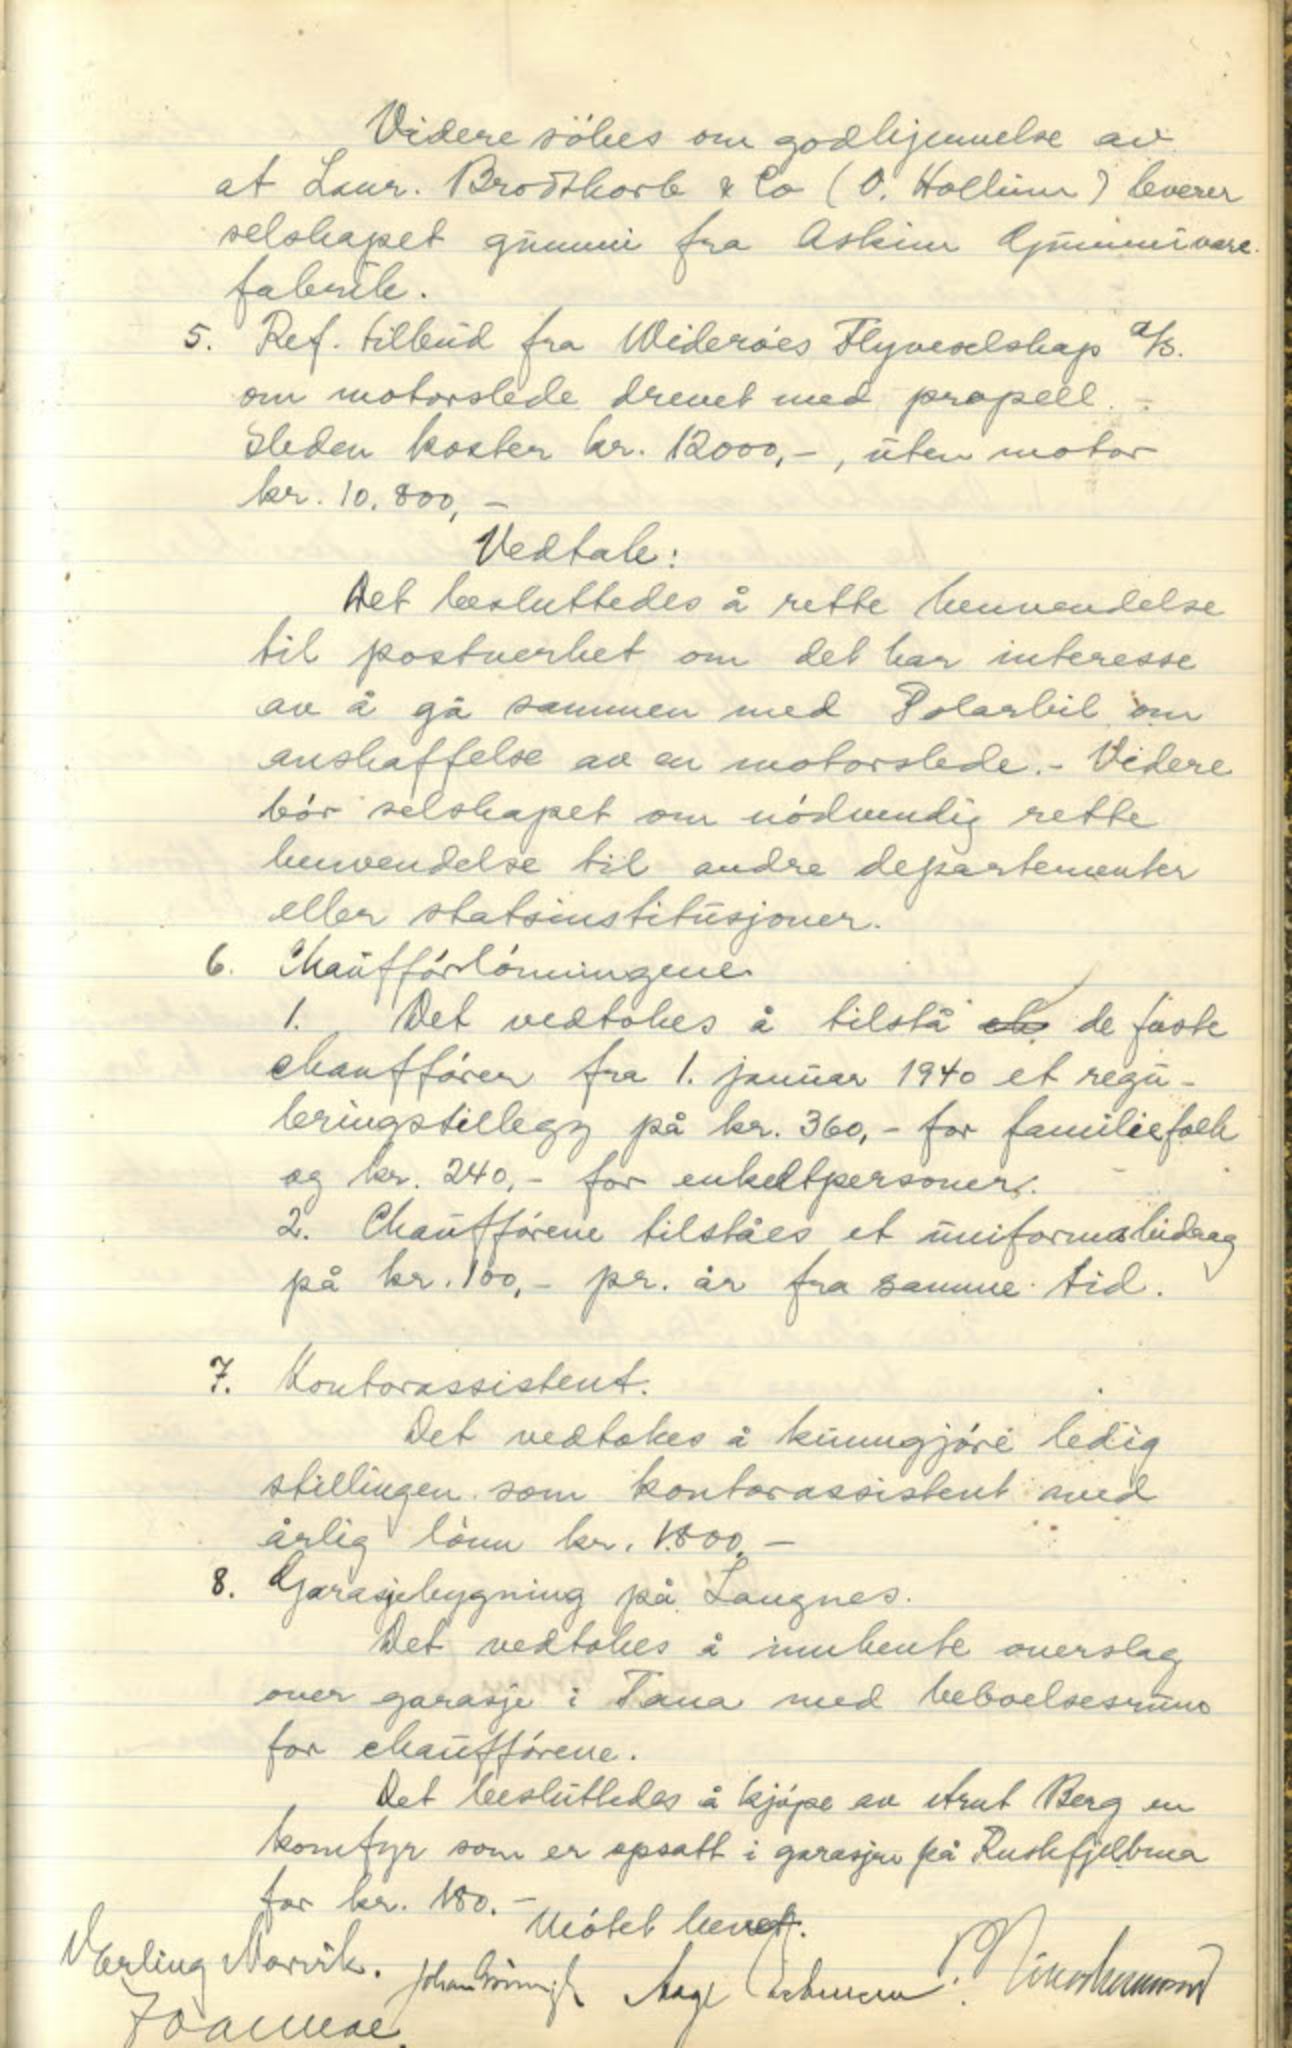 Videre søkes om godkjennelse av
at Laur. Brodtkorb & Co (O. Hallum) leverer
selskapet gummi fra Askim Gummivare-
fabrik.
5. Ref. tilbud fra Widerøes Flyveselskap a/s.
om motorslede drevet med propell. -
Sleden koster kr. 12000,-, uten motor
kr. 10.800,-
Vedtak:
Det besluttedes å rette henvendelse
til postverket om det har interesse
av å gå sammen med Polarbil om
anskaffelse av en motorslede. - Videre
bør selskapet om nødvendig rette
henvendelse til andre departementer
eller statsinstitusjoner.
6. Chaufførlønningene
1. Det vedtokes å tilstå de faste
chauffører fra 1. januar 1940 et regu-
leringstillegg på kr. 360,- for familiefolk
og kr. 240,- for enkeltpersoner.
2. Chaufførene tilståes et uniformsbidrag
på kr. 100,- pr. år fra samme tid.
7. Kontorassistent.
Det vedtokes å kunngjøre ledig
stillingen som kontorassistent med
årlig lønn kr. 1800,-
8. Garasjebygning på Langnes.
Det vedtokes å innhente overslag
over garasje i Tana med beboelsesrum
for chaufførene.
Det besluttedes å kjøpe av Arnt Berg en
komfyr som er opsatt i garasjen på Rustefjelbma
for kr. 180.-
Møtet hevet.
Erling Norvik. Johan Aage